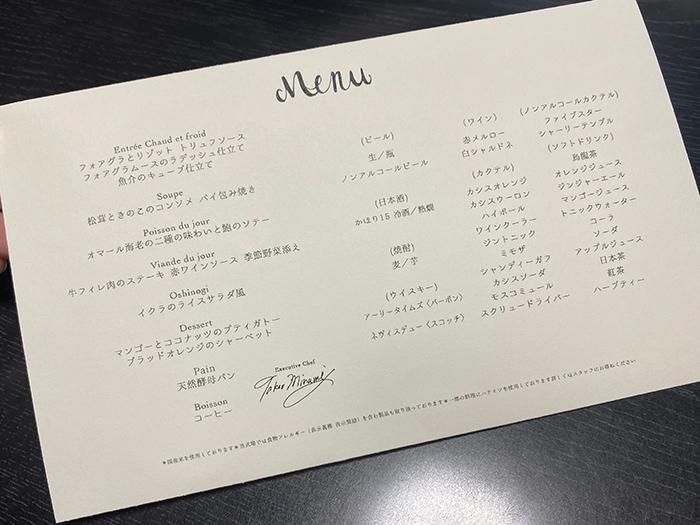 Menu
Entrée Chaud et froid
フォアグラとリゾット トリュフソース
フォアグラムースのラデッシュ仕立て
魚介のキューブ仕立て
Soupe
松茸ときのこのコンソメ パイ包み焼き
Poisson du jour
オマール海老の二種の味わいと鮑のソテー
Viande du jour
牛フィレ肉のステーキ 赤ワインソース 季節野菜添え
Oshinogi
イクラのライスサラダ風
Dessert
マンゴーとココナッツのプティガトー
ブラッドオレンジのシャーベット
Pain
天然酵母パン
Boisson
コーヒー
Executive Chef
Takeo Minami
(ビール)
生／瓶
ノンアルコールビール
(日本酒)
かほり15 冷酒／熱燗
(焼酎)
麦／芋
(ウイスキー)
アーリータイムズ〈バーボン〉
ネヴィスデュー〈スコッチ〉
(ワイン)
赤メルロー
白シャルドネ
(カクテル)
カシスオレンジ
カシスウーロン
ハイボール
ワインクーラー
ジントニック
ミモザ
シャンディーガフ
カシスソーダ
モスコミュール
スクリュードライバー
(ノンアルコールカクテル)
ファイブスター
シャーリーテンプル
(ソフトドリンク)
烏龍茶
オレンジジュース
ジンジャーエール
マンゴージュース
トニックウォーター
コーラ
ソーダ
アップルジュース
日本茶
紅茶
ハーブティー
＊国産米を使用しております＊当式場では食物アレルギー（表示義務 表示奨励）を含む製品も取り扱っております＊一部の料理にハチミツを使用しております詳しくはスタッフにお尋ねください